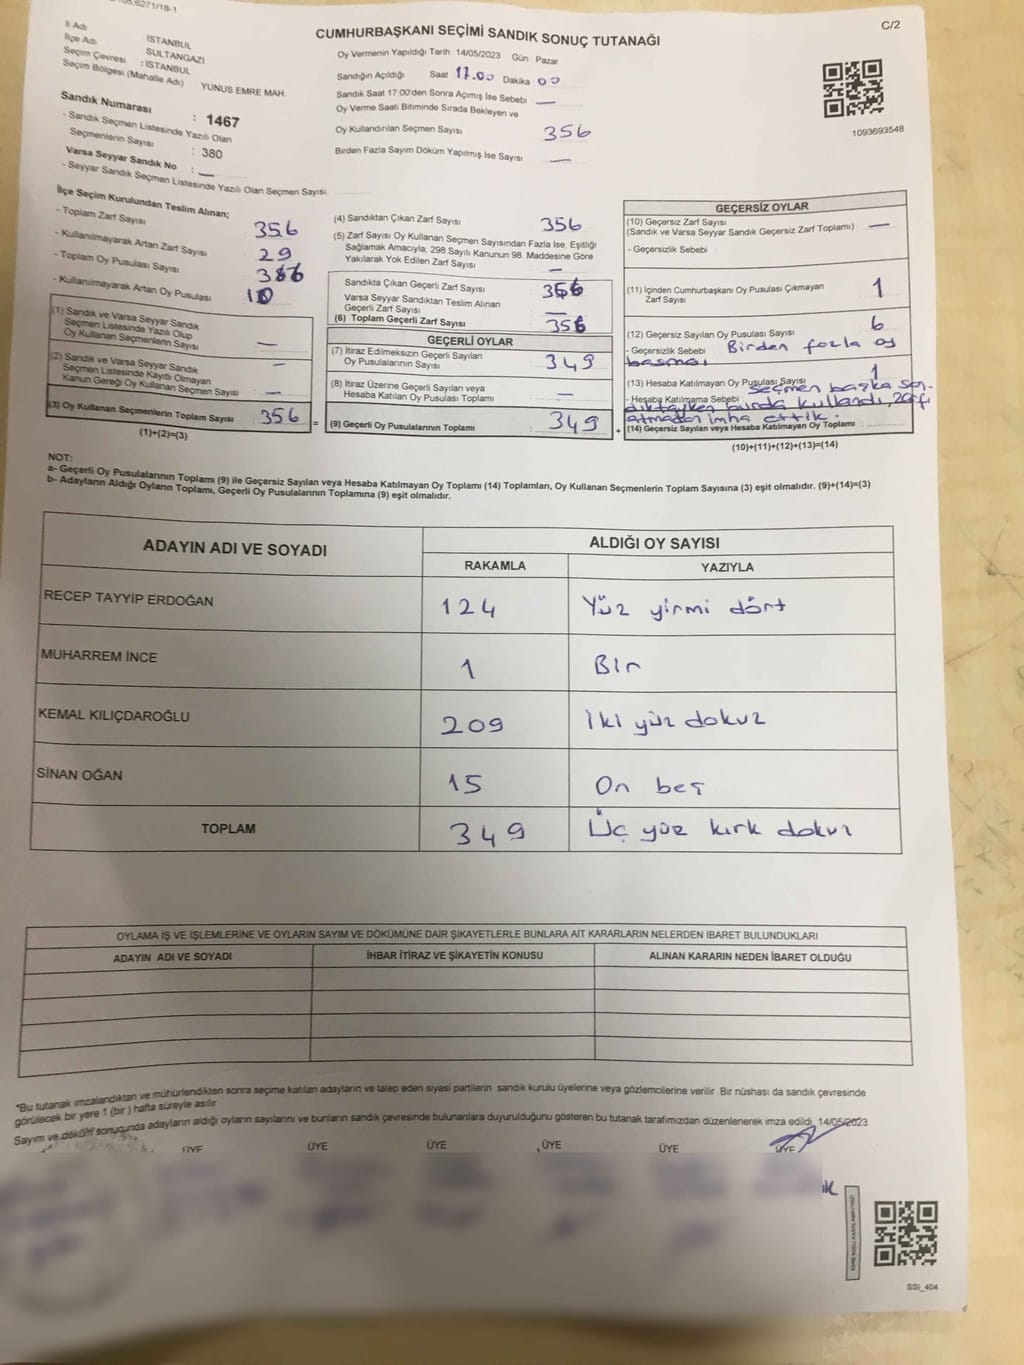 6271/18-1
C/2
CUMHURBAŞKANI SEÇİMİ SANDIK SONUÇ TUTANAĞI
İl Adı İSTANBUL
İlçe Adı SULTANGAZİ
Seçim Çevresi : İSTANBUL
Seçim Bölgesi (Mahalle Adı) YUNUS EMRE MAH.
Sandık Numarası : 1467
- Sandık Seçmen Listesinde Yazılı Olan
Seçmenlerin Sayısı : 380
Varsa Seyyar Sandık No : —
- Seyyar Sandık Seçmen Listesinde Yazılı Olan Seçmen Sayısı
Oy Vermenin Yapıldığı Tarih 14/05/2023 Gün Pazar
Sandığın Açıldığı Saat 17.00 Dakika 00
Sandık Saat 17:00'den Sonra Açımış İse Sebebi —
Oy Verme Saati Bitiminde Sırada Bekleyen ve
Oy Kullandırılan Seçmen Sayısı 356
Birden Fazla Sayım Döküm Yapılmış İse Sayısı —
1093693548
İlçe Seçim Kurulundan Teslim Alınan;
- Toplam Zarf Sayısı 356
- Kullanılmayarak Artan Zarf Sayısı 29
- Toplam Oy Pusulası Sayısı
- Kullanılmayarak Artan Oy Pusulası
(1) Sandık ve Varsa Seyyar Sandık
Seçmen Listesinde Yazılı Olup
Oy Kullanan Seçmenlerin Sayısı —
(2) Sandık ve Varsa Seyyar Sandık
Seçmen Listesinde Kayıtlı Olmayan
Kanun Gereği Oy Kullanan Seçmen Sayısı —
(3) Oy Kullanan Seçmenlerin Toplam Sayısı 356
(1)+(2)=(3)
(4) Sandıktan Çıkan Zarf Sayısı 356
(5) Zarf Sayısı Oy Kullanan Seçmen Sayısından Fazla İse, Eşitliği
Sağlamak Amacıyla, 298 Sayılı Kanunun 98. Maddesine Göre
Yakılarak Yok Edilen Zarf Sayısı —
Sandıkta Çıkan Geçerli Zarf Sayısı 356
Varsa Seyyar Sandıktan Teslim Alınan
Geçerli Zarf Sayısı —
(6) Toplam Geçerli Zarf Sayısı 356
GEÇERLİ OYLAR
(7) İtiraz Edilmeksizin Geçerli Sayılan
Oy Pusulalarının Sayısı 349
(8) İtiraz Üzerine Geçerli Sayılan veya
Hesaba Katılan Oy Pusulası Toplamı —
= (9) Geçerli Oy Pusulalarının Toplamı 349 +
GEÇERSİZ OYLAR
(10) Geçersiz Zarf Sayısı
(Sandık ve Varsa Seyyar Sandık Geçersiz Zarf Toplamı) —
- Geçersizlik Sebebi
(11) İçinden Cumhurbaşkanı Oy Pusulası Çıkmayan
Zarf Sayısı 1
(12) Geçersiz Sayılan Oy Pusulası Sayısı 6
- Geçersizlik Sebebi Birden fazla oy
basması
(13) Hesaba Katılmayan Oy Pusulası Sayısı 1
- Hesaba Katılmama Sebebi seçmen başka san-
dıktayken burda kullandı, zarfı
atmadan imha ettik.
(14) Geçersiz Sayılan veya Hesaba Katılmayan Oy Toplamı
(10)+(11)+(12)+(13)=(14)
NOT:
a- Geçerli Oy Pusulalarının Toplamı (9) ile Geçersiz Sayılan veya Hesaba Katılmayan Oy Toplamı (14) Toplamları, Oy Kullanan Seçmenlerin Toplam Sayısına (3) eşit olmalıdır. (9)+(14)=(3)
b- Adayların Aldığı Oyların Toplamı, Geçerli Oy Pusulalarının Toplamına (9) eşit olmalıdır.
ADAYIN ADI VE SOYADI ALDIĞI OY SAYISI
RAKAMLA YAZIYLA
RECEP TAYYİP ERDOĞAN 124 Yüz yirmi dört
MUHARREM İNCE 1 Bir
KEMAL KILIÇDAROĞLU 209 İki yüz dokuz
SİNAN OĞAN 15 On beş
TOPLAM 349 Üç yüz kırk dokuz
OYLAMA İŞ VE İŞLEMLERİNE VE OYLARIN SAYIM VE DÖKÜMÜNE DAİR ŞİKAYETLERLE BUNLARA AİT KARARLARIN NELERDEN İBARET BULUNDUKLARI
ADAYIN ADI VE SOYADI İHBAR İTİRAZ VE ŞİKAYETİN KONUSU ALINAN KARARIN NEDEN İBARET OLDUĞU
*Bu tutanak imzalandıktan ve mühürlendikten sonra seçime katılan adayların ve talep eden siyasi partilerin sandık kurulu üyelerine veya gözlemcilerine verilir. Bir nüshası da sandık çevresinde
görülecek bir yere 1 (bir) hafta süreyle asılır.
Sayım ve döküm sonucunda adayların aldığı oyların sayılarını ve bunların sandık çevresinde bulunanlara duyurulduğunu gösteren bu tutanak tarafımızdan düzenlenerek imza edildi. 14/05/2023
ÜYE ÜYE ÜYE ÜYE ÜYE ÜYE
SSI_404